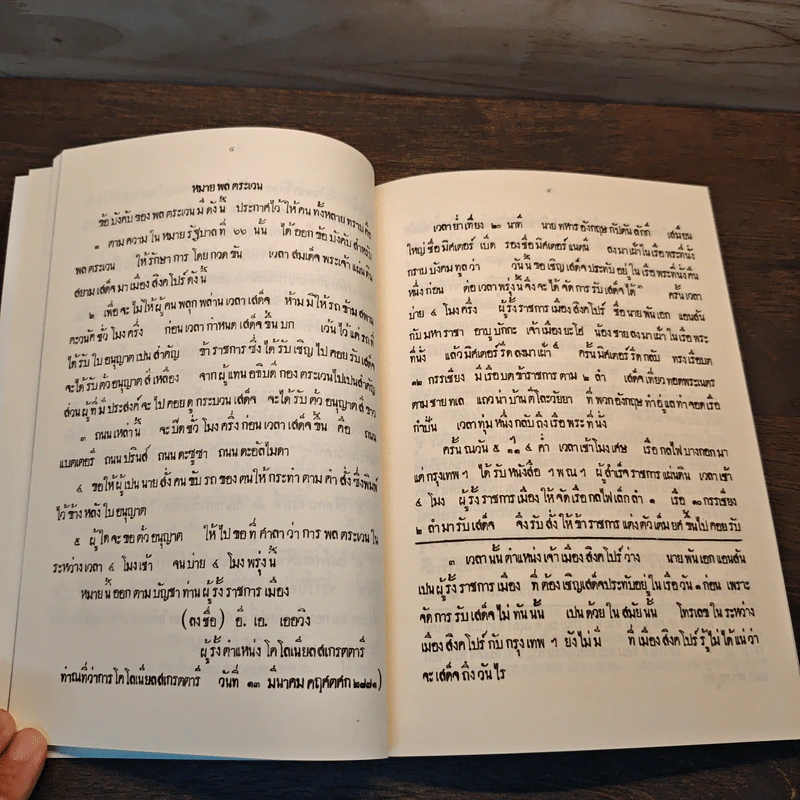 ๘
หมาย พล ตระเวน
ข้อ บังคับ ของ พล ตระเวน มี ดังนี้ ประกาศไว้ ให้ คน ทั้งหลาย ทราบ คือ
๑ ตาม ความ ใน หมาย รัฐบาล ที่ ๖๖ นั้น ได้ ออก ข้อ บังคับ สำหรับ
พล ตระเวน ให้ รักษา การ โดย กวด ขัน เวลา สมเด็จ พระเจ้า แผ่นดิน
สยาม เสด็จ มา เมือง สิงคโปร์ ดังนี้
๒ เพื่อ จะ ไม่ ให้ ผู้ คน พลุก พล่าน เวลา เสด็จ ห้าม มิ ให้ รถ ข้าม สพาน
คะวนัค ชั่ว โมง ครึ่ง ก่อน เวลา กำหนด เสด็จ ขึ้น บก เว้น ไว้ แต่ รถ ที่
ได้ รับ ใบ อนุญาต เปน สำคัญ ข้า ราชการ ซึ่ง ได้ รับ เชิญ ไป คอย รับ เสด็จ
จะ ได้ รับ ตั๋ว อนุญาต สี เหลือง จาก ผู้ แทน อธิบดี กอง ตระเวน ไป เปน สำคัญ
ส่วน ผู้ ที่ มี ประสงค์ จะ ไป คอย ดู กระบวน เสด็จ จะ ได้ รับ ตั๋ว อนุญาต สี ขาว
๓ ถนน เหล่า นี้ จะ ปิด ชั่ว โมง ครึ่ง ก่อน เวลา เสด็จ ขึ้น คือ ถนน
แบตเตอรี่ ถนน ปรินส์ ถนน คะซูชา ถนน ดะอัลไมดา
๔ ขอ ให้ ผู้ เปน นาย สั่ง คน ขับ รถ ของ ตน ให้ กระทำ ตาม คำ สั่ง ซึ่ง พิมพ์
ไว้ ข้าง หลัง ใบ อนุญาต
๕ ผู้ ใด จะ ขอ ตั๋ว อนุญาต ให้ ไป ขอ ที่ ศาลา ว่า การ พล ตระเวน ใน
ระหว่าง เวลา ๔ โมง เช้า จน บ่าย ๔ โมง พรุ่ง นี้
หมาย นี้ ออก ตาม บัญชา ท่าน ผู้ รั้ง ราชการ เมือง
(ลง ชื่อ) อี. เอ. เออวิง
ผู้ รั้ง ตำแหน่ง โคโลเนียลสเกรตตารี
ทำ ณ ที่ ว่า การ โคโลเนียลสเกรตตารี วันที่ ๑๓ มีนาคม คฤศตศก ๒๘๘๑)
๙
เวลา ย่ำ เที่ยง ๒๐ นาที นาย ทหาร อังกฤษ กัปตัน สักกี เสมียน
ใหญ่ ชื่อ มิศเตอร์ เบิด รอง ชื่อ มิศเตอร์ แนดนี ลง มา เฝ้า ใน เรือ พระ ที่นั่ง
กราบ บังคม ทูล ว่า วัน นี้ ขอ เชิญ เสด็จ ประทับ อยู่ ใน เรือ พระ ที่นั่ง คืน
หนึ่ง ก่อน ต่อ เวลา พรุ่ง นี้ จึง จะ ได้ จัด การ รับ เสด็จ ได้ ๓ ครั้น เวลา
บ่าย ๔ โมง ครึ่ง ผู้ รั้ง ราชการ เมือง สิงคโปร์ ชื่อ นาย พัน เอก แอนสัน
กับ มหา ราชา อาบู บักกะ เจ้า เมือง ยะโฮ่ น้อง ชาย ลง มา เฝ้า ใน เรือ พระ
ที่นั่ง แล้ว มิศเตอร์ รีด ลง มา เฝ้า ครั้น มิศเตอร์ รีด กลับ ทรง เรือ บด
๑๒ กรรเชียง มี เรือ บด ข้า ราชการ ตาม ๒ ลำ เสด็จ เที่ยว ทอด พระเนตร
ตาม ชาย ทเล แถว น่า บ้าน ตโละวัยยา ที่ พวก อังกฤษ ทำ อู่ แล ท่า จอด เรือ
กำปั่น เวลา ทุ่ม หนึ่ง กลับ ถึง เรือ พระ ที่ นั่ง
ครั้น ณ วัน ๕ ๑๑ ๔ ค่ำ เวลา เช้า โมง เศษ เรือ กล ไฟ บางกอก มา
แต่ กรุงเทพ ฯ ได้ รับ หนังสือ ฯ พณ ฯ ผู้ สำเร็จ ราชการ แผ่นดิน เวลา เช้า
๔ โมง ผู้ รั้ง ราชการ เมือง ให้ จัด เรือ กล ไฟ เล็ก ลำ ๑ เรือ ๑๐ กรรเชียง
๒ ลำ มา รับ เสด็จ จึง รับ สั่ง ให้ ข้า ราชการ แต่ง ตัว เต็ม ยศ ขึ้น ไป คอย รับ
๓ เวลา นั้น ตำแหน่ง เจ้า เมือง สิงคโปร์ ว่าง นาย พัน เอก แอนสัน
เปน ผู้ รั้ง ราชการ เมือง ที่ ต้อง เชิญ เสด็จ ประทับ อยู่ ใน เรือ วัน ๑ ก่อน เพราะ
จัด การ รับ เสด็จ ไม่ ทัน นั้น เปน ด้วย ใน สมัย นั้น โทรเลข ใน ระหว่าง
เมือง สิงคโปร์ กับ กรุงเทพ ฯ ยัง ไม่ มี ที่ เมือง สิงคโปร์ รู้ ไม่ ได้ แน่ ว่า
จะ เสด็จ ถึง วัน ไร